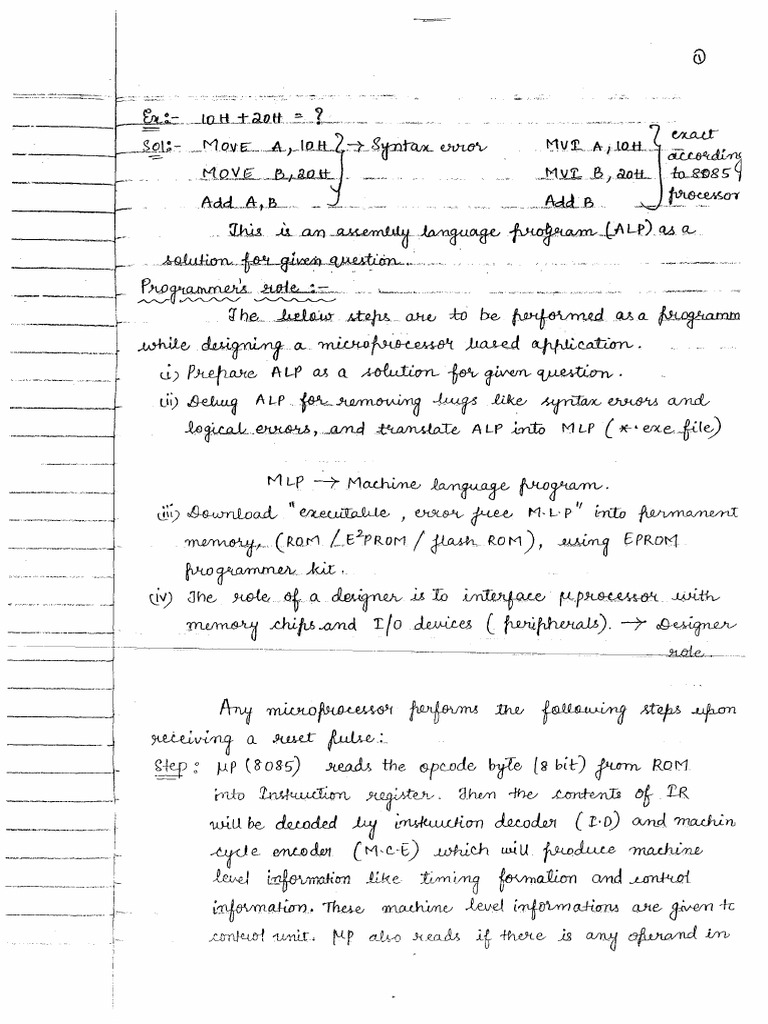 ①
Ex:- 10H + 20H = ?
Sol:- MOVE A, 10H → Syntax error MVI A, 10H exact
MOVE B, 20H MVI B, 20H according to 8085
Add A, B Add B processor
This is an assembly language program (ALP) as a
solution for given question.
Programmer's role :-
The below steps are to be performed as a programm
while designing a microprocessor based application.
i) Prepare ALP as a solution for given question.
ii) Debug ALP for removing bugs like syntax errors and
logical errors, and translate ALP into MLP (*.exe file)
MLP → Machine language program.
iii) Download "executable, error free M.L.P" into permanent
memory, (ROM / E²PROM / flash ROM), using EPROM
programmer kit.
(iv) The role of a designer is to interface μprocessor with
memory chips and I/O devices (peripherals). → Designer
role.
Any microprocessor performs the following steps upon
receiving a reset pulse:
Step: μP (8085) reads the opcode byte (8 bit) from ROM
into Instruction register. Then the contents of IR
will be decoded by instruction decoder (I.D) and machin
cycle encoder (M.C.E) which will produce machine
level information like timing formation and control
information. These machine level informations are given to
control unit. μP also reads if there is any operand in